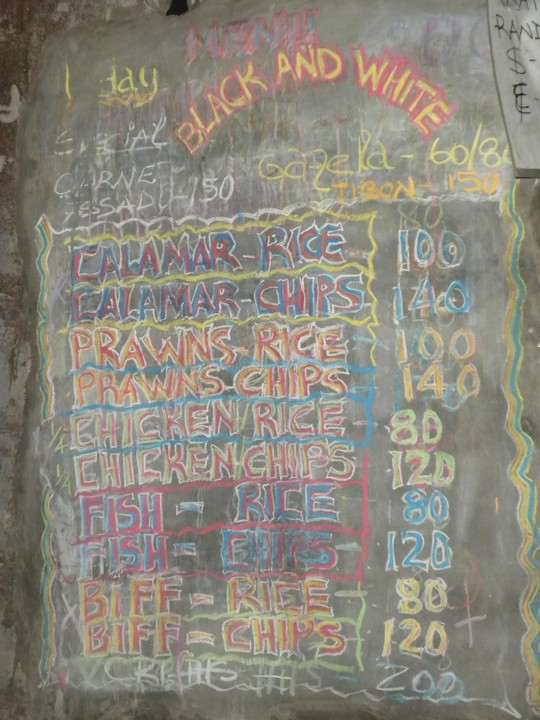 MENU
BLACK AND WHITE
RAND
$-
£
Gazella - 60/80
CARNE
PESADO - 150
TIBON - 150
80
CALAMAR - RICE 100
CALAMAR - CHIPS 140
PRAWNS - RICE 100
PRAWNS CHIPS 140
1/4 CHICKEN/RICE 80
1/4 CHICKEN/CHIPS 120
FISH - RICE 80
FISH - CHIPS 120
BIFF - RICE 80
BIFF - CHIPS 120
200